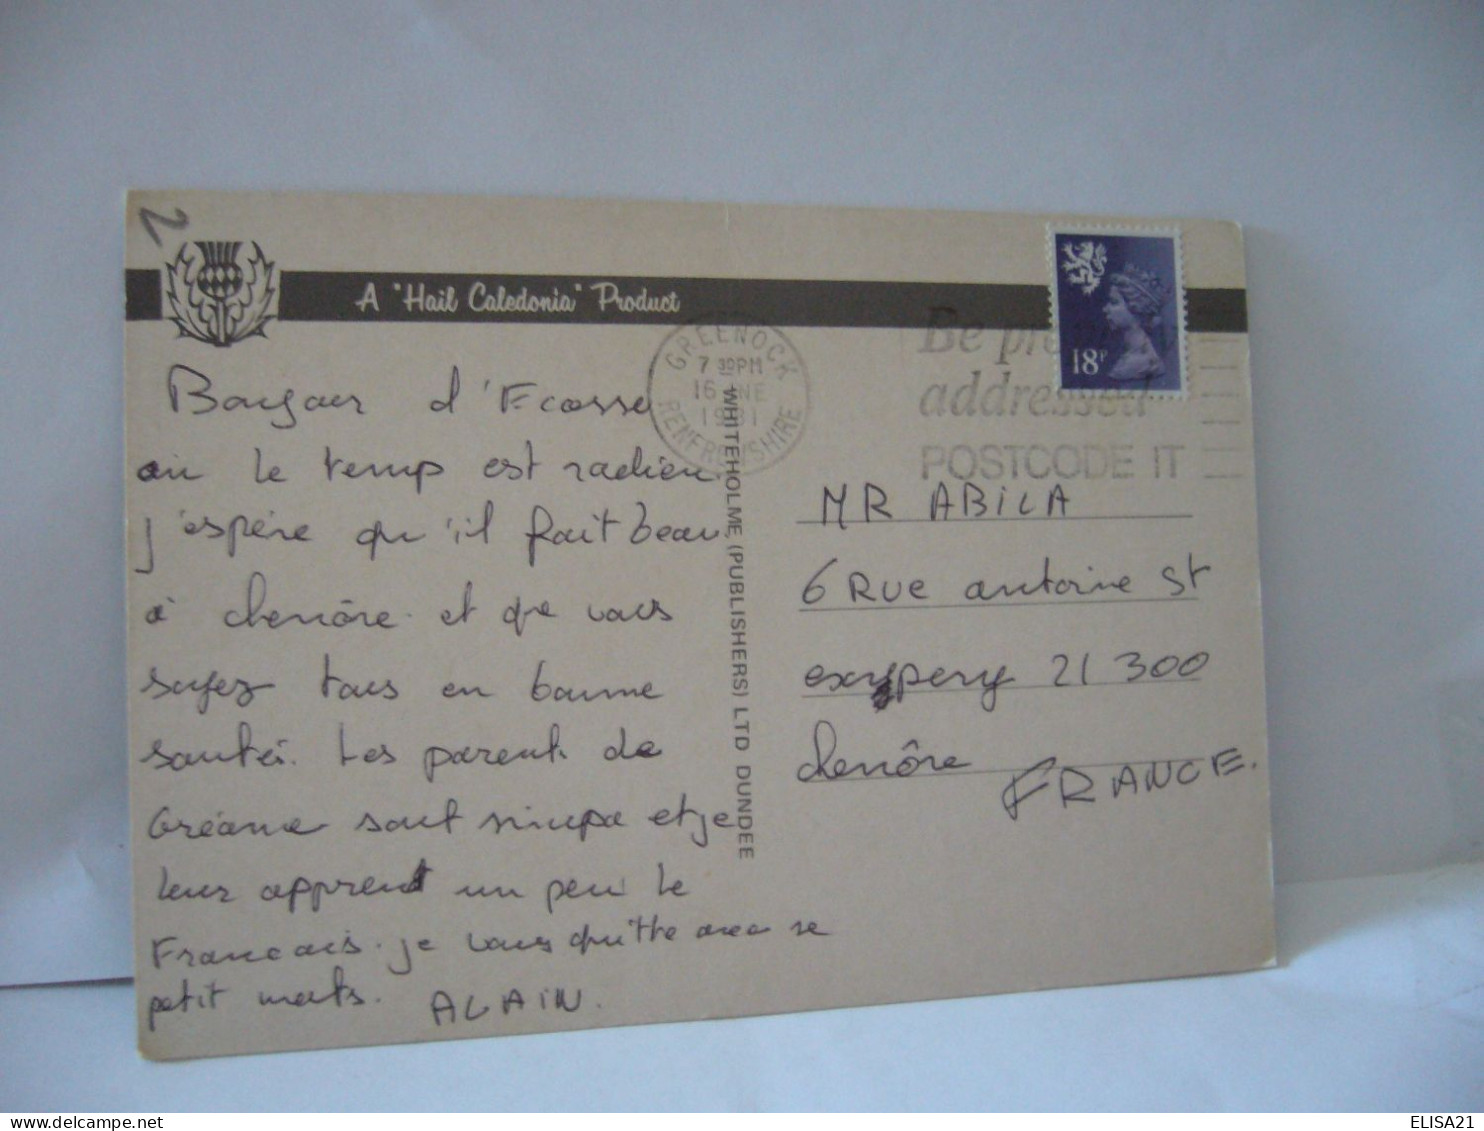 2
A "Hail Caledonia" Product
GREENOCK
7 30PM
16 NE
1981
RENFREWSHIRE
Be
addressed
POSTCODE IT
18P
Bonjour d'Ecosse
ou le temp est radieu
j'espère qu'il frait beau
à chenôre et que vous
soyez tous en bonne
santéi. Les parents de
Gréane sont simpa et je
leur apprend un peu le
Francais. je vous quitte avec se
petit mots. ALAIN.
WHITEHOLME, (PUBLISHERS) LTD DUNDEE
MR ABILA
6 Rue antoine St
exypery 21 300
chenôre
FRANCE.
ELISA21